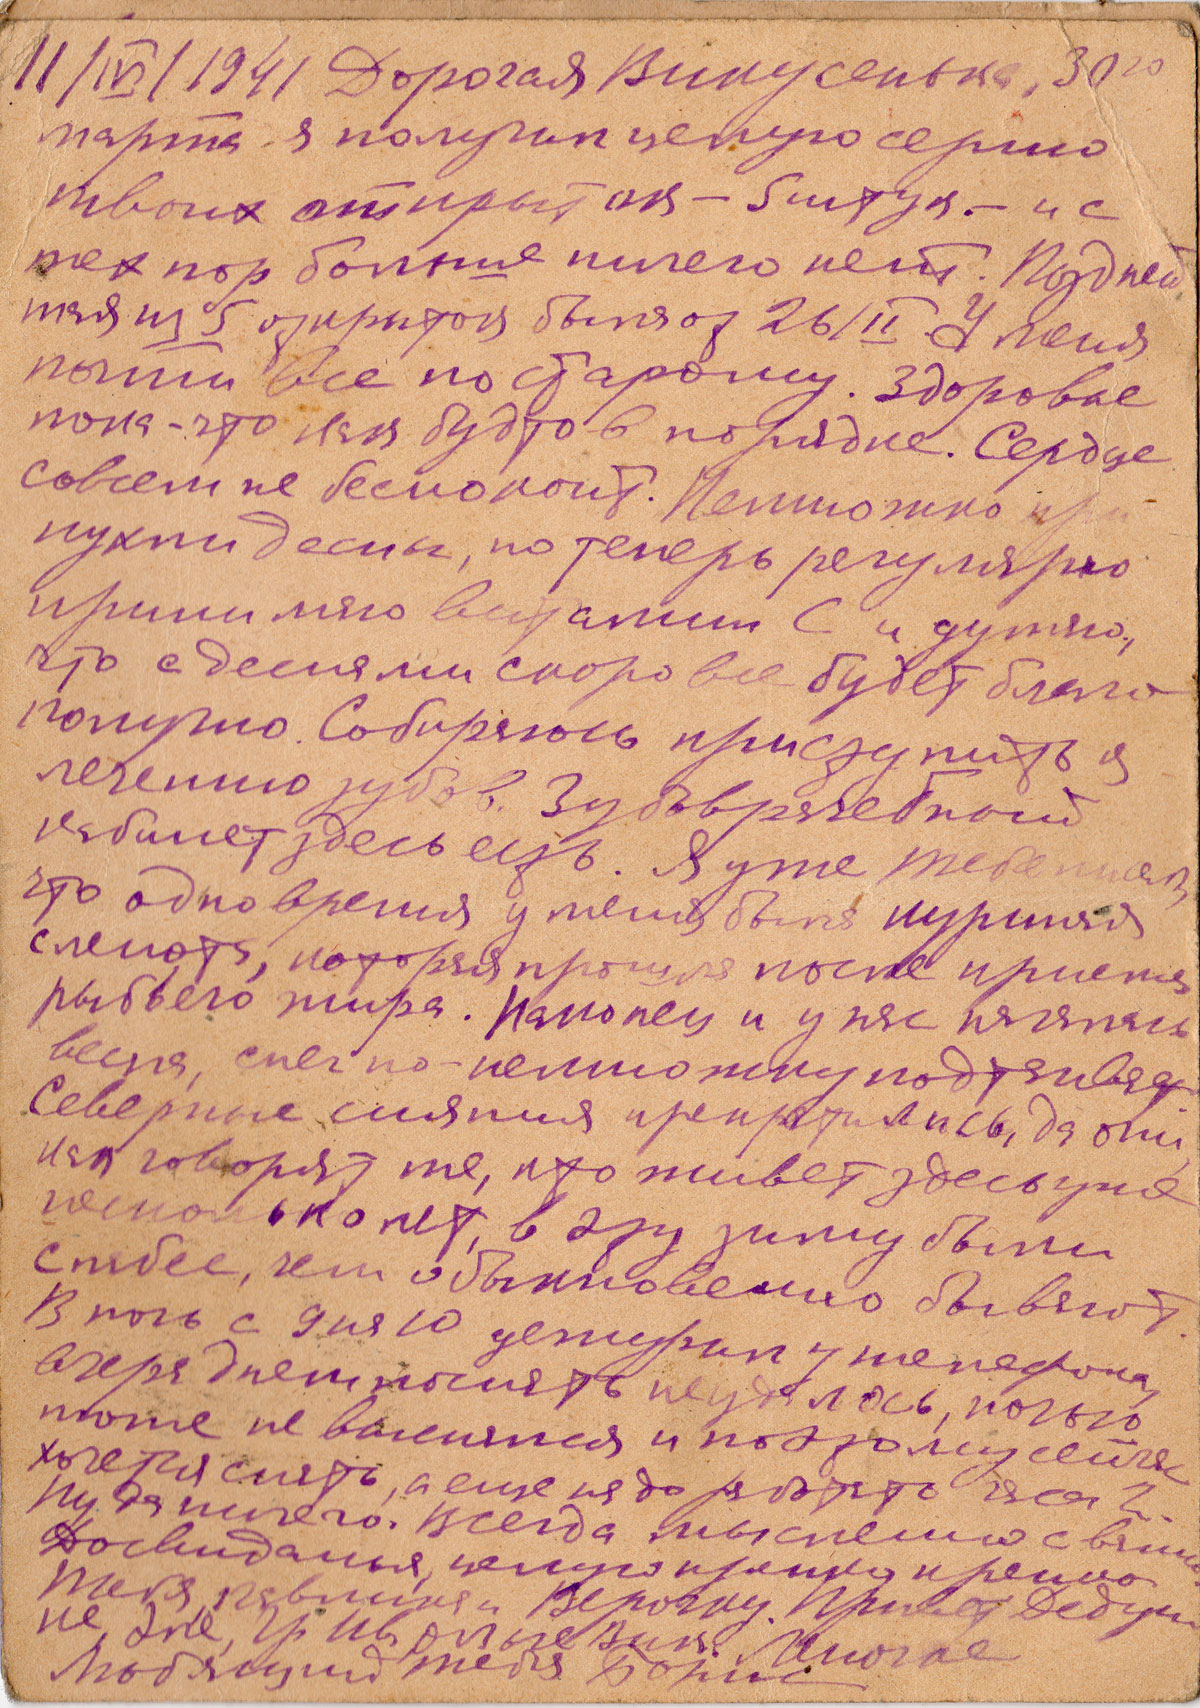 11/IV/1941 Дорогая Викусенька, 30го
марта я получил целую серию
твоих открыток – 5 штук. – и с
тех пор больше ничего нет. Поздней
шая из 5 открыток была от 26/II. У меня
почти все по старому. Здоровье
пока-что как будто в порядке. Сердце
совсем не беспокоит. Немножко при
пухли десны, но теперь регулярно
принимаю витамин С и думаю,
что с деснами скоро все будет благо
получно. Собираюсь приступить к
лечению зубов. Зубоврачебный
кабинет здесь есть. Я уже тебе писал,
что одно время у меня была куриная
слепота, которая прошла после приема
рыбьего жира. Наконец и у нас началась
весна, снег по-немножку подтаивает.
Северные сияния прекратились, да они,
как говорят те, кто живет здесь уже
несколько лет, в эту зиму были
слабее, чем обыкновенно бывают.
В ночь с 9 на 10 дежурил у телефона,
вчера днем поспать не удалось, ночью
тоже не выспался и поэтому сейчас
хочется спать, а еще надо работать часа 2.
Ну да ничего. Всегда мысленно с вами.
Досвиданья, целую крепко крепко
тебя, и Верочку. Привет Дедуш
ке,
Любящий тебя Борис